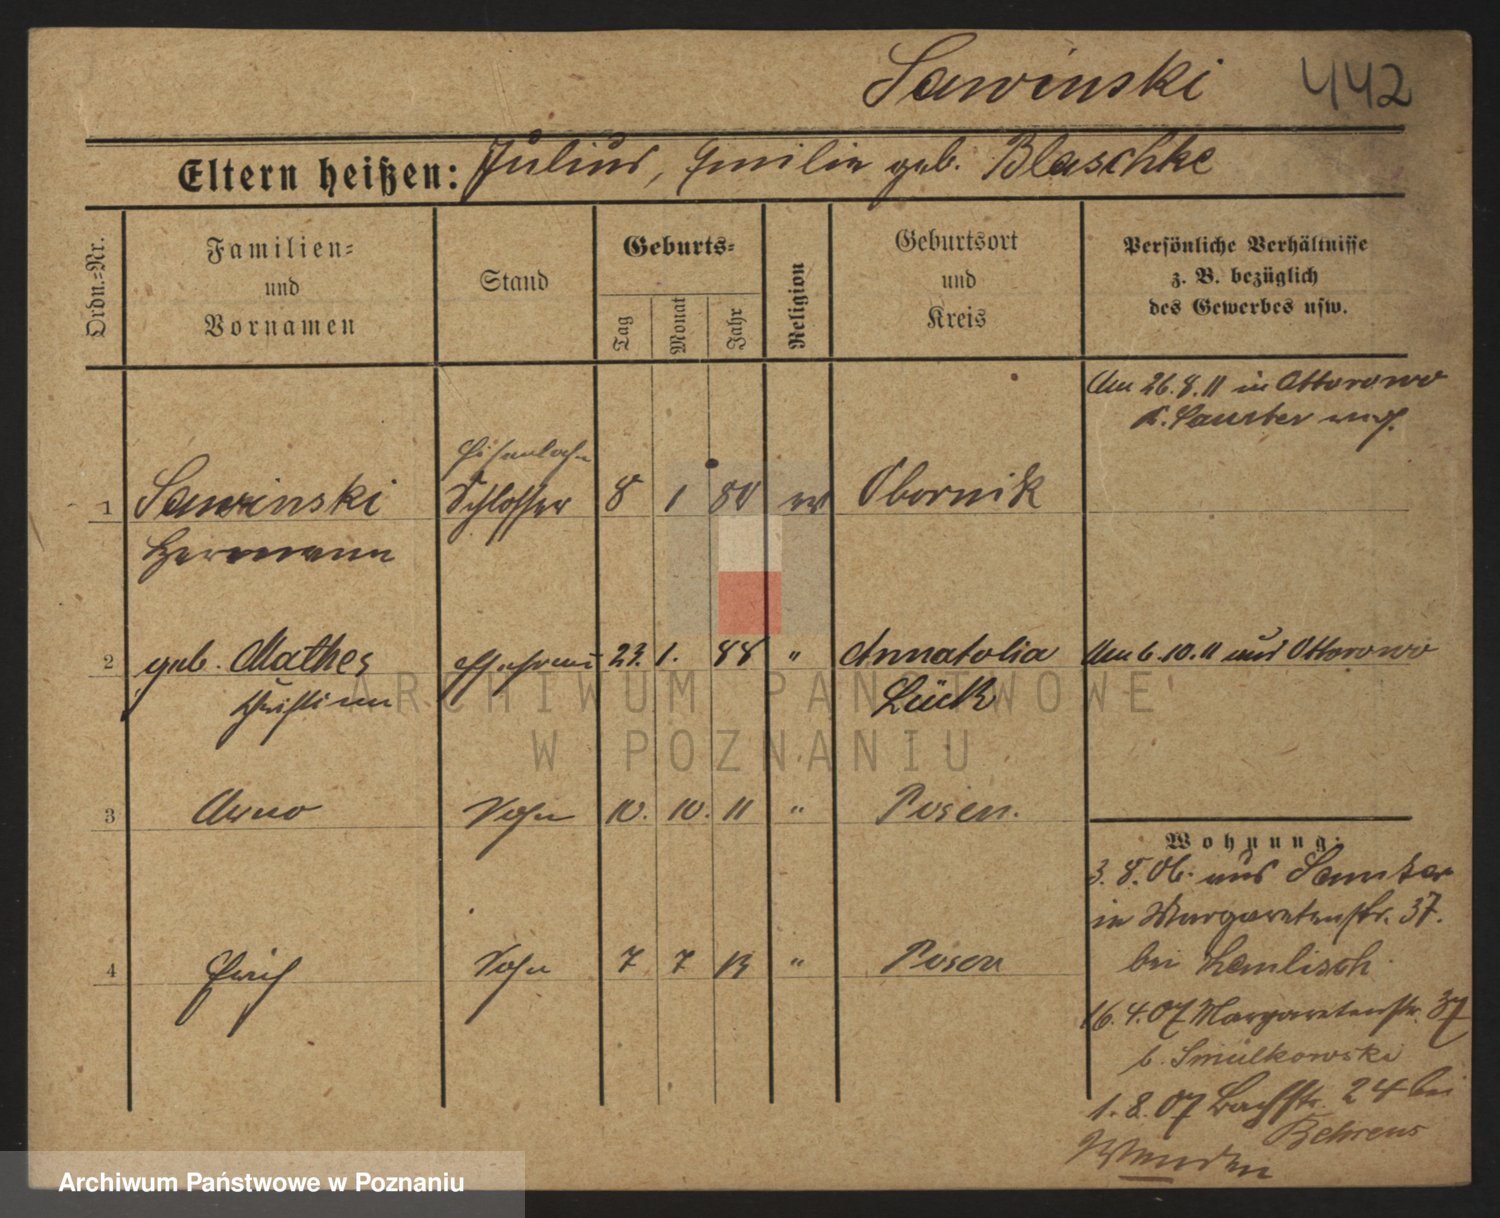 Sawinski 442
Eltern heißen: Julius, Emilie geb. Blaschke
Ordn.=Nr.
Familien=
und
Vornamen
Stand
Geburts=
Tag
Monat
Jahr
Religion
Geburtsort
und
Kreis
Persönliche Verhältnisse
z. B. bezüglich
des Gewerbes usw.
Am 26.8.11 in Ottorowo
Kr. Samter
1 Sawinski Schlosser 8 1 80 Obornik
Hermann
2 geb. Mathes Ehefrau 23. 1. 88 " Annatolia Am 6.10.11 aus Ottorowo
Christine Lück
3 Arno Sohn 10. 10. 11 " Posen.
Wohnung:
3.8.06. aus Samter
in Margaretenstr. 37.
4 Erich Sohn 7 7 13 " Posen
bei
16.4.07 Margaretenstr. 37
b. Smulkowski
1.8.07 Bachstr. 24 bei
Behrens
Wenden
ARCHIWUM PAŃSTWOWE
W POZNANIU
Archiwum Państwowe w Poznaniu